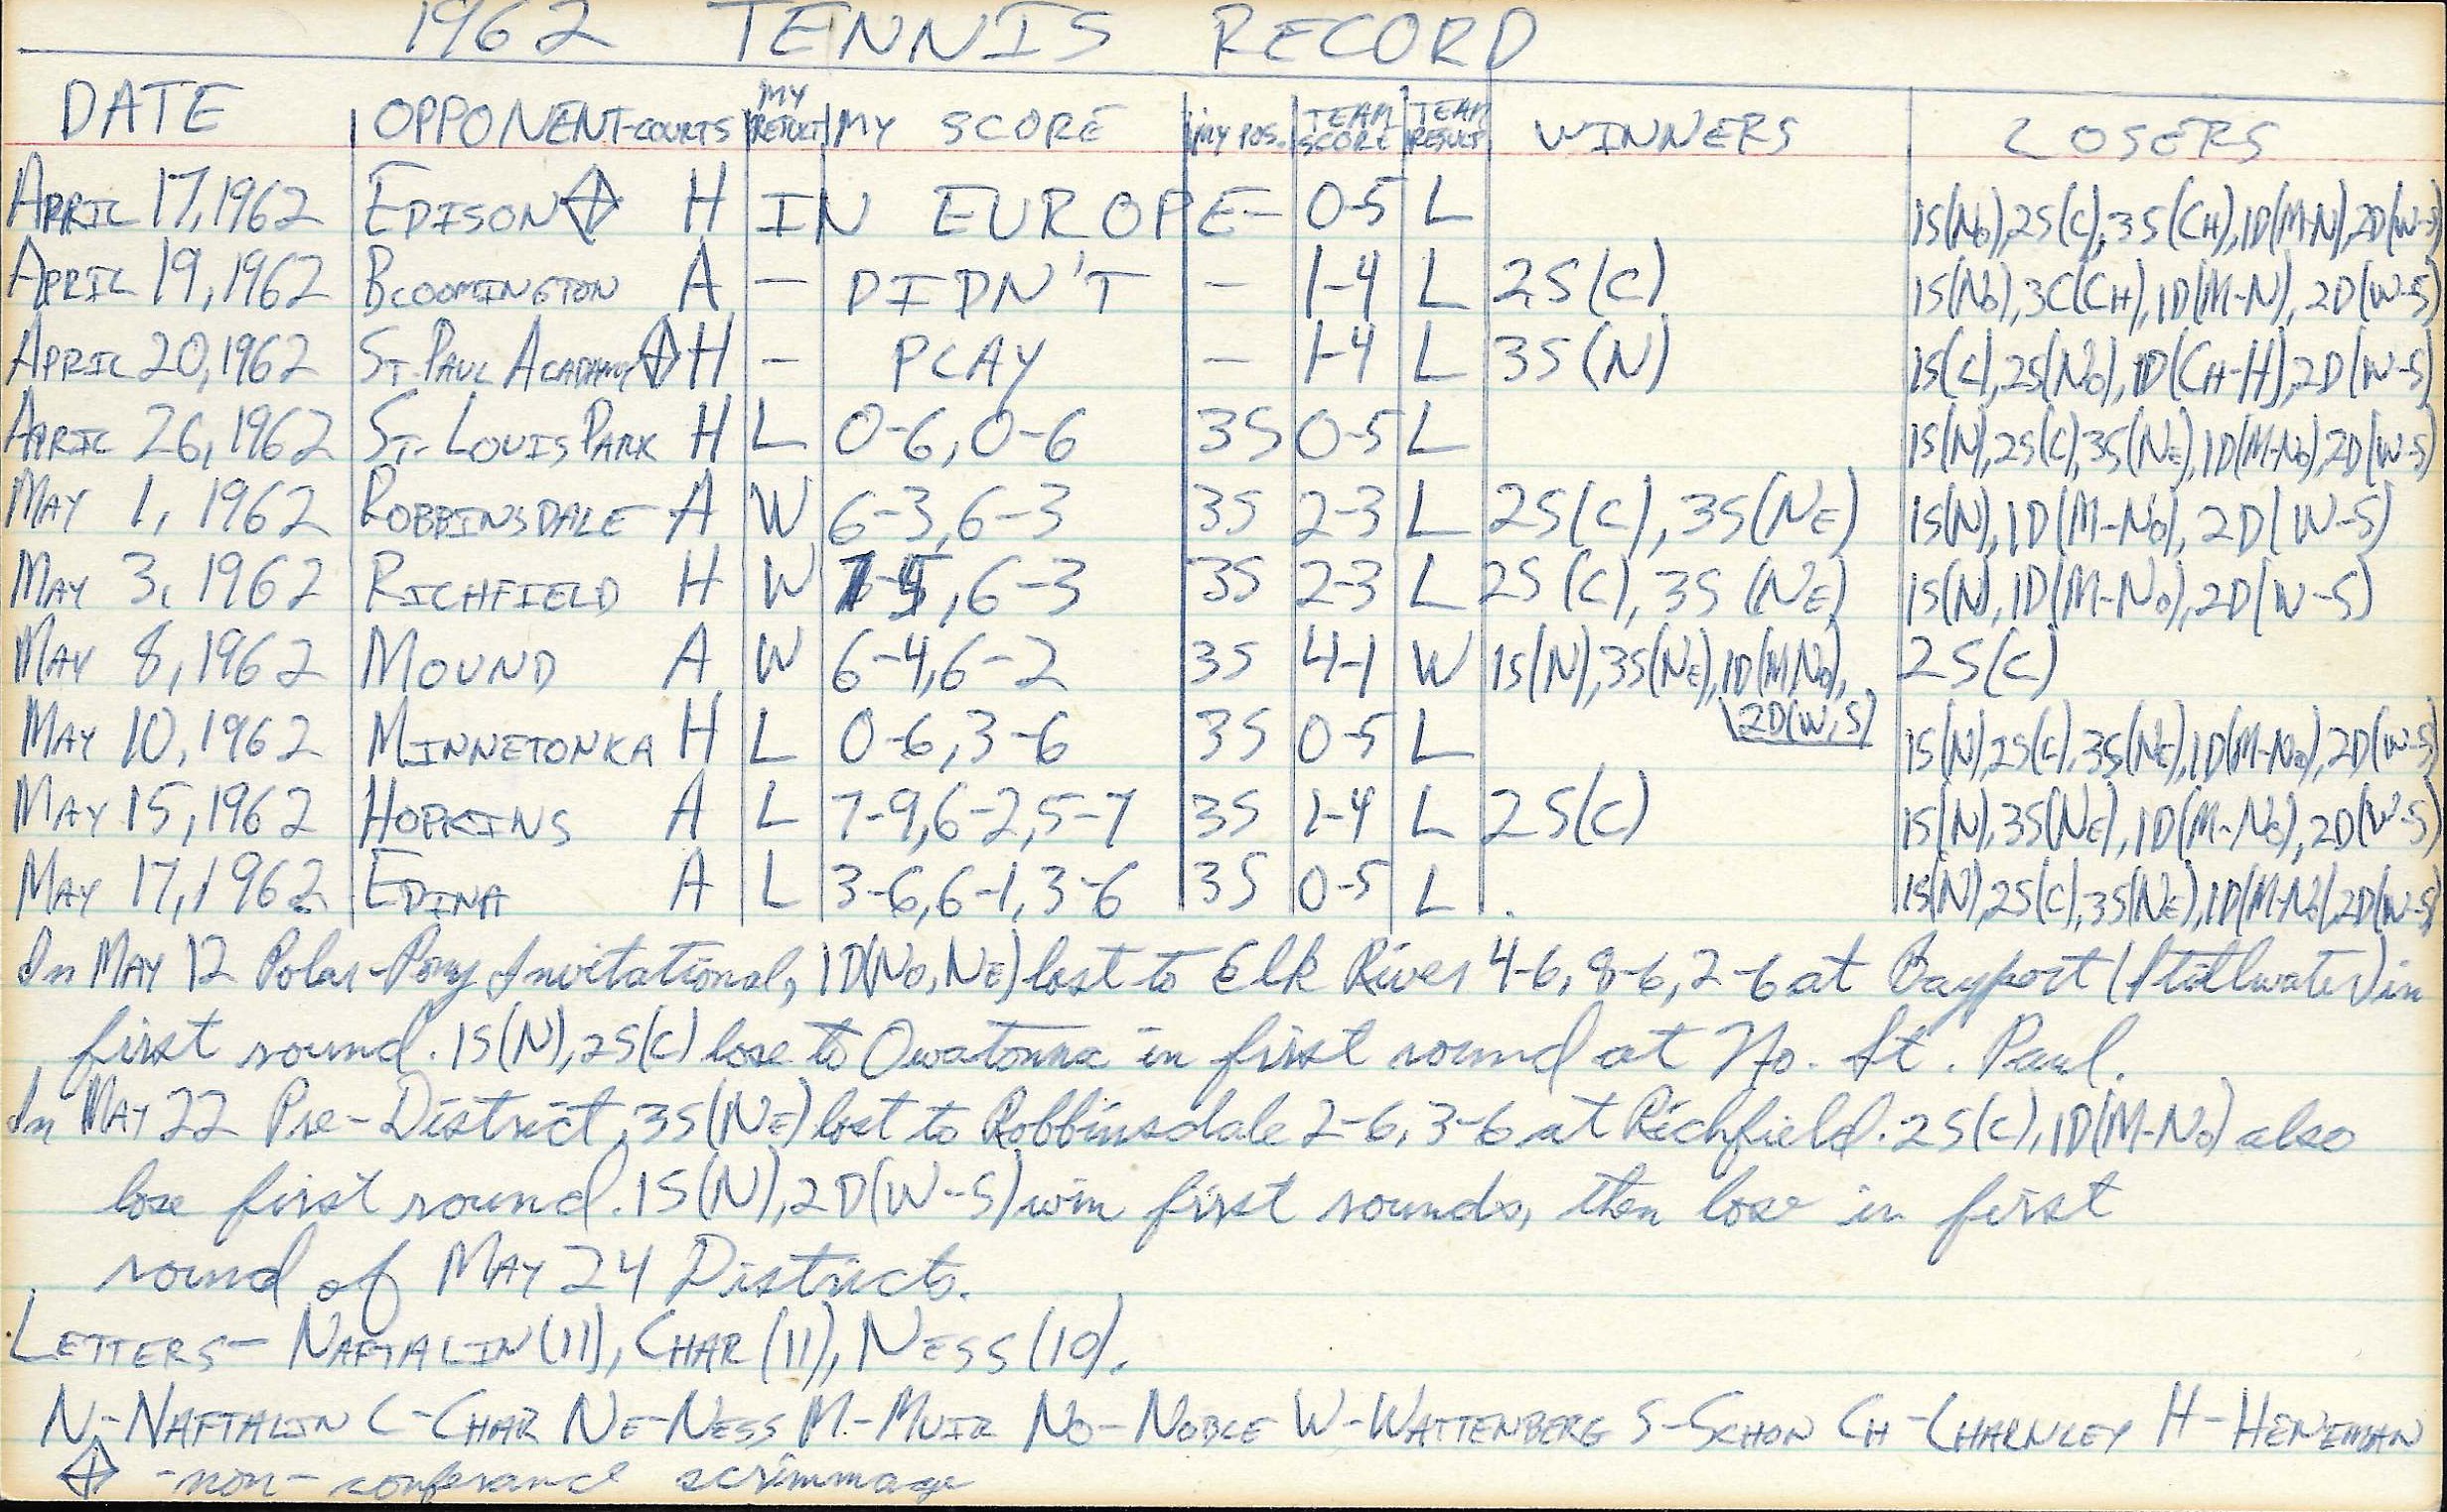 1962 TENNIS RECORD
DATE OPPONENT-COURTS MY RESULT MY SCORE MY POS. TEAM SCORE TEAM RESULT WINNERS LOSERS
APRIL 17, 1962 EDISON H IN EUROPE- 0-5 L 1S(NO), 2S(C), 3S(CH), 1D(M-N), 2D(W-S)
APRIL 19, 1962 BLOOMINGTON A - DIDN'T - 1-4 L 2S(C) 1S(NO), 3C(CH), 1D(M-N), 2D(W-S)
APRIL 20, 1962 ST. PAUL ACADAMY H - PLAY - 1-4 L 3S(N) 1S(C), 2S(NO), 1D(CH-H), 2D(W-S)
APRIL 26, 1962 ST. LOUIS PARK H L 0-6, 0-6 3S 0-5 L 1S(N), 2S(C), 3S(NE), 1D(M-NO), 2D(W-S)
MAY 1, 1962 ROBBINSDALE A W 6-3, 6-3 3S 2-3 L 2S(C), 3S(NE) 1S(N), 1D(M-NO), 2D(W-S)
MAY 3, 1962 RICHFIELD H W 7-5, 6-3 3S 2-3 L 2S(C), 3S(NE) 1S(N), 1D(M-NO), 2D(W-S)
MAY 8, 1962 MOUND A W 6-4, 6-2 3S 4-1 W 1S(N), 3S(NE), 1D(M,NO), 2S(C)
2D(W,S)
MAY 10, 1962 MINNETONKA H L 0-6, 3-6 3S 0-5 L 1S(N), 2S(C), 3S(NE), 1D(M-NO), 2D(W-S)
MAY 15, 1962 HOPKINS A L 7-9, 6-2, 5-7 3S 1-4 L 2S(C) 1S(N), 3S(NE), 1D(M-NO), 2D(W-S)
MAY 17, 1962 EDINA A L 3-6, 6-1, 3-6 3S 0-5 L 1S(N), 2S(C), 3S(NE), 1D(M-NO), 2D(W-S)
In MAY 12 Polar-Pony Invitational, 1D(NO, NE) lost to Elk River 4-6, 8-6, 2-6 at Bayport (Stillwater) in
first round. 1S(N), 2S(C) lose to Owatonna in first round at No. St. Paul.
In MAY 22 Pre-District, 3S(NE) lost to Robbinsdale 2-6, 3-6 at Richfield. 2S(C), 1D(M-NO) also
lose first round. 1S(N), 2D(W-S) win first rounds, then lose in first
round of MAY 24 Districts.
LETTERS- NAFTALIN (11), CHAR (11), NESS (10).
N-NAFTALIN C-CHAR NE-NESS M-MUIR NO-NOBLE W-WATTENBERG S-SCHON CH-CHARNLEY H-HENEMAN
-non-conferance scrimmage